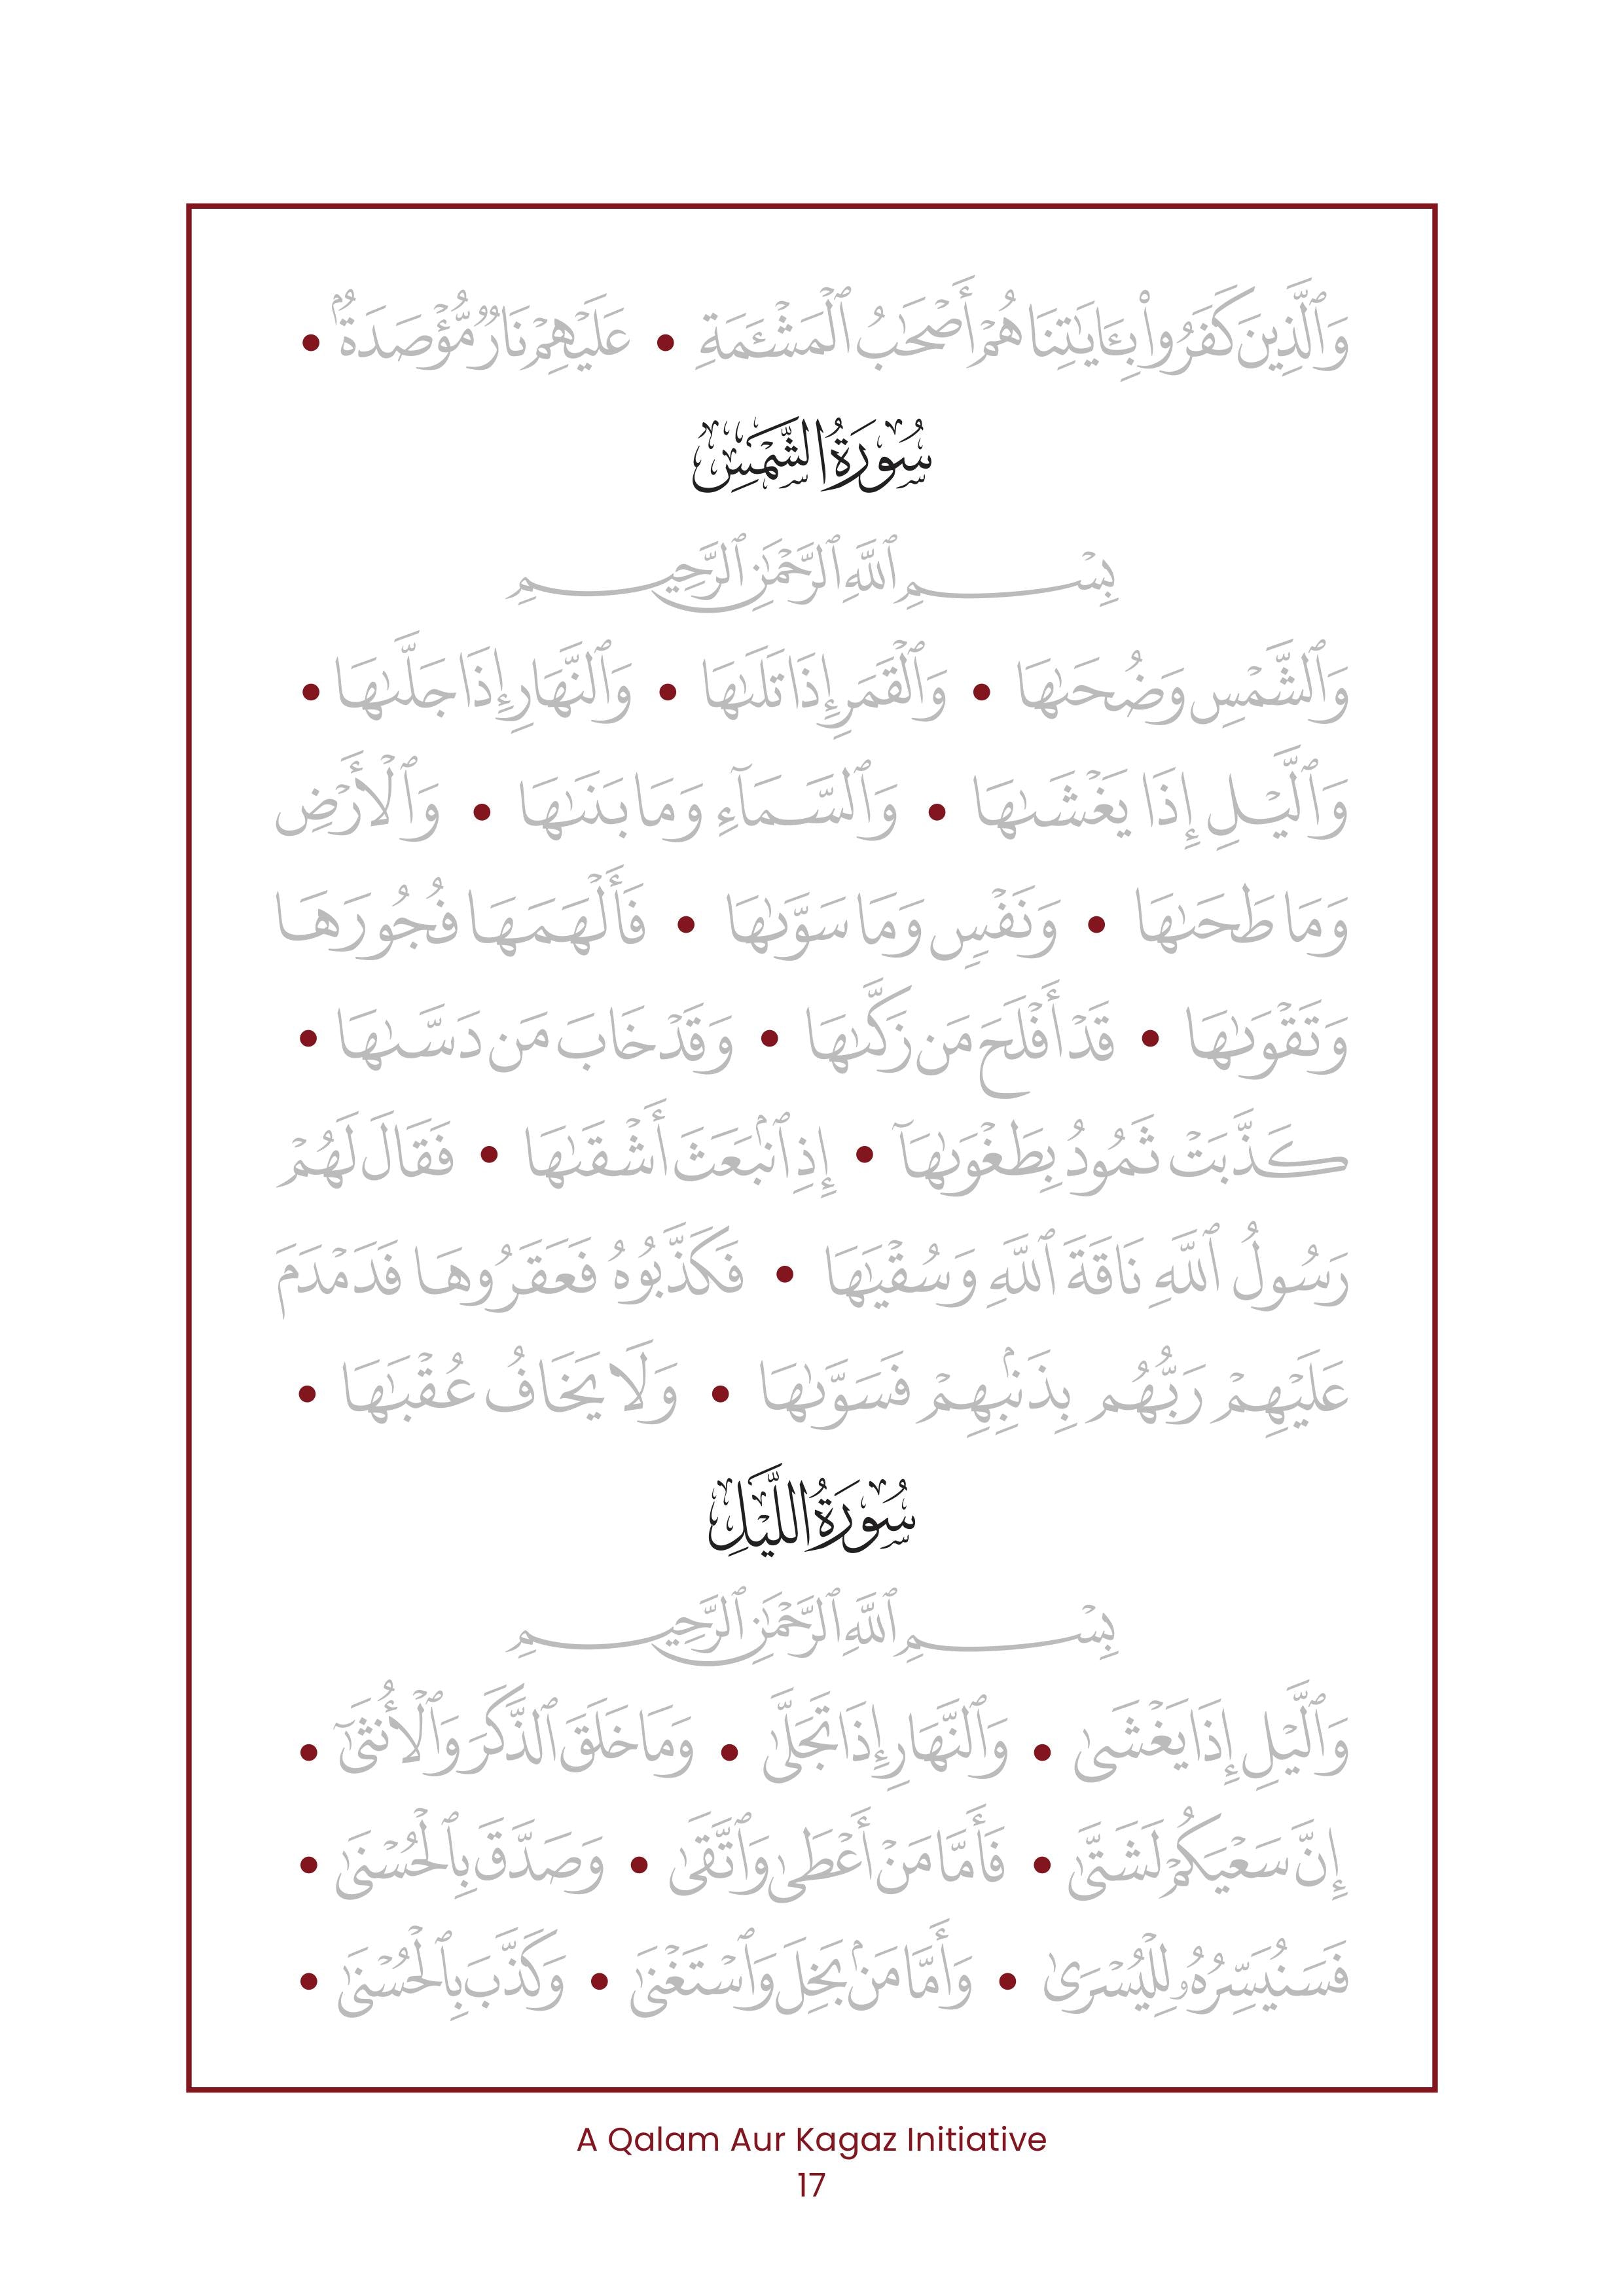 وَٱلَّذِينَ كَفَرُوا۟ بِـَٔايَـٰتِنَا هُمْ أَصْحَـٰبُ ٱلْمَشْـَٔمَةِ • عَلَيْهِمْ نَارٌ مُّؤْصَدَةٌۢ •
سُورَةُ الشَّمْسِ
بِسْمِ ٱللَّهِ ٱلرَّحْمَـٰنِ ٱلرَّحِيمِ
وَٱلشَّمْسِ وَضُحَىٰهَا • وَٱلْقَمَرِ إِذَا تَلَىٰهَا • وَٱلنَّهَارِ إِذَا جَلَّىٰهَا •
وَٱلَّيْلِ إِذَا يَغْشَىٰهَا • وَٱلسَّمَآءِ وَمَا بَنَىٰهَا • وَٱلْأَرْضِ
وَمَا طَحَىٰهَا • وَنَفْسٍ وَمَا سَوَّىٰهَا • فَأَلْهَمَهَا فُجُورَهَا
وَتَقْوَىٰهَا • قَدْ أَفْلَحَ مَن زَكَّىٰهَا • وَقَدْ خَابَ مَن دَسَّىٰهَا •
كَذَّبَتْ ثَمُودُ بِطَغْوَىٰهَآ • إِذِ ٱنۢبَعَثَ أَشْقَىٰهَا • فَقَالَ لَهُمْ
رَسُولُ ٱللَّهِ نَاقَةَ ٱللَّهِ وَسُقْيَـٰهَا • فَكَذَّبُوهُ فَعَقَرُوهَا فَدَمْدَمَ
عَلَيْهِمْ رَبُّهُم بِذَنۢبِهِمْ فَسَوَّىٰهَا • وَلَا يَخَافُ عُقْبَـٰهَا •
سُورَةُ اللَّيْلِ
بِسْمِ ٱللَّهِ ٱلرَّحْمَـٰنِ ٱلرَّحِيمِ
وَٱلَّيْلِ إِذَا يَغْشَىٰ • وَٱلنَّهَارِ إِذَا تَجَلَّىٰ • وَمَا خَلَقَ ٱلذَّكَرَ وَٱلْأُنثَىٰٓ •
إِنَّ سَعْيَكُمْ لَشَتَّىٰ • فَأَمَّا مَنْ أَعْطَىٰ وَٱتَّقَىٰ • وَصَدَّقَ بِٱلْحُسْنَىٰ •
فَسَنُيَسِّرُهُۥ لِلْيُسْرَىٰ • وَأَمَّا مَنۢ بَخِلَ وَٱسْتَغْنَىٰ • وَكَذَّبَ بِٱلْحُسْنَىٰ •
A Qalam Aur Kagaz Initiative
17